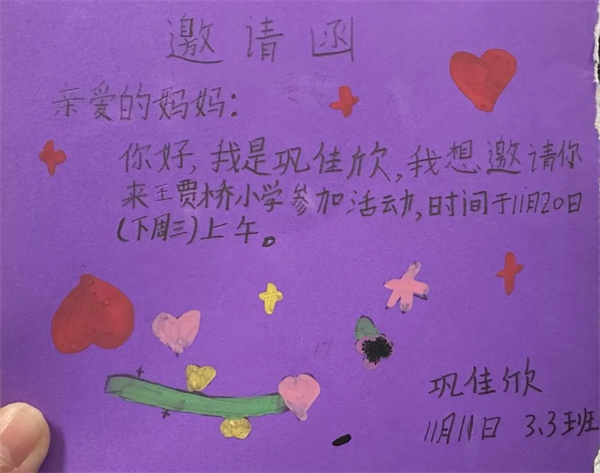 邀请函
亲爱的妈妈:
你好,我是巩佳欣,我想邀请你
来王贾桥小学参加活动,时间于11月20日
(下周三)上午。
巩佳欣
11月11日 3.3班